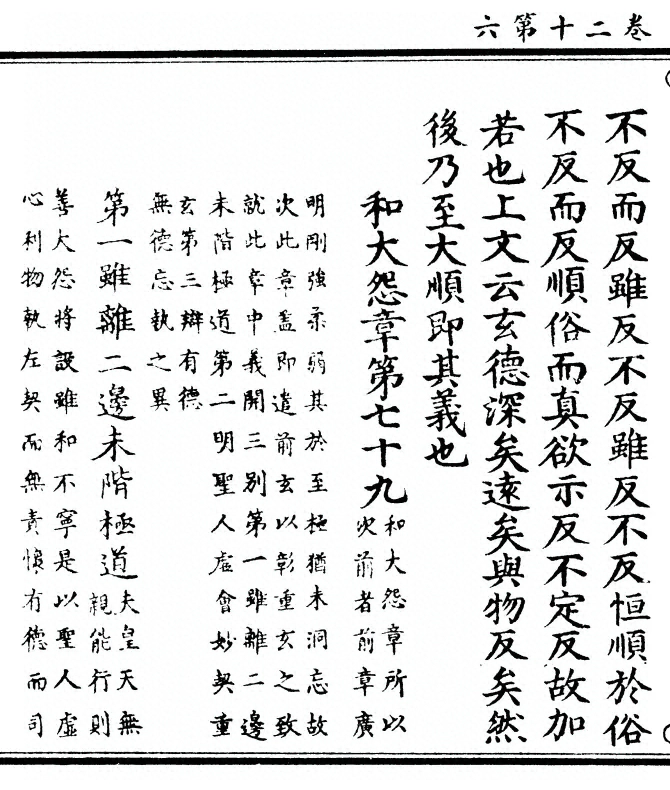 卷二十第六
不反而反雖反不反雖反不反恒順於俗
不反而反順俗而真欲示反不定反故加
若也上文云玄德深矣遠矣與物反矣然
後乃至大順即其義也
和大怨章第七十九
和大怨章所以
次前者前章廣
明剛強柔弱其於至極猶未洞忘故
次此章蓋即遣前玄以彰重玄之致
就此章中義開三別第一雖離二邊
未階極道第二明聖人虛會妙契重
玄第三辯有德
無德忘執之異
第一雖離二邊未階極道
夫皇天無
親能行則
善大怨將設雖和不寧是以聖人虛
心利物執左契而無責懷有德而司